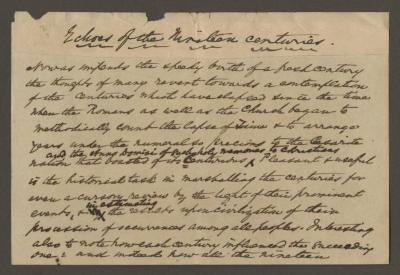 Echoes of the Nineteen Centuries.
Now as impends the speedy birth of a fresh century
the thoughts of many revert towards a contemplation
of the centuries which have elapsed since the time
when the Romans as well as the Church began to
methodically count the lapse of Time & to arrange
years under the numeral so precious to the Caesarite
and the stone bound of mighty memories to Christians
nation that boasted of its Centurions. Pleasant & useful
is the historical task in marshalling the centuries for
even a cursory review by the light of their prominent
in estimating
events, & the results upon civilization of their
procession of occurrences among all peoples. Interesting
also to note how each century influenced the succeeding
one: and indeed how all the nineteen